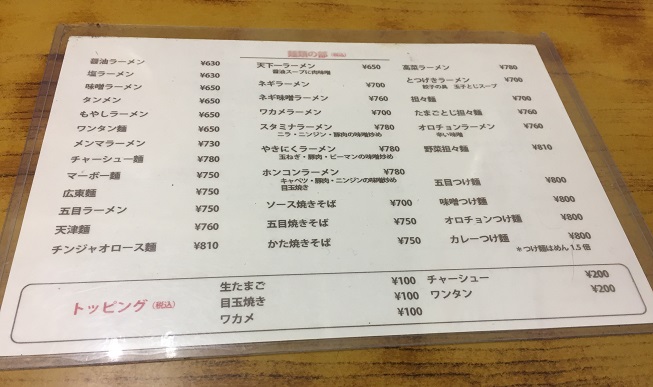 麺類の部(税込)
醤油ラーメン ¥630
塩ラーメン ¥630
味噌ラーメン ¥650
タンメン ¥650
もやしラーメン ¥650
ワンタン麺 ¥650
メンマラーメン ¥730
チャーシュー麺 ¥780
マーボー麺 ¥750
広東麺 ¥750
五目ラーメン ¥750
天津麺 ¥760
チンジャオロース麺 ¥810
天下一ラーメン ¥650
醤油スープに肉味噌
ネギラーメン ¥700
ネギ味噌ラーメン ¥760
ワカメラーメン ¥700
スタミナラーメン ¥780
ニラ・ニンジン・豚肉の味噌炒め
やきにくラーメン ¥780
玉ねぎ・豚肉・ピーマンの味噌炒め
ホンコンラーメン ¥780
キャベツ・豚肉・ニンジンの味噌炒め
目玉焼き
ソース焼きそば ¥700
五目焼きそば ¥750
かた焼きそば ¥750
高菜ラーメン ¥780
とつげきラーメン ¥700
餃子の具 玉子とじスープ
担々麺 ¥700
たまごとじ担々麺 ¥760
オロチョンラーメン ¥760
辛い味噌
野菜担々麺 ¥810
五目つけ麺 ¥800
味噌つけ麺 ¥800
オロチョンつけ麺 ¥800
カレーつけ麺 ¥800
*つけ麺はめん1.5倍
トッピング(税込)
生たまご ¥100
目玉焼き ¥100
ワカメ ¥100
チャーシュー ¥200
ワンタン ¥200